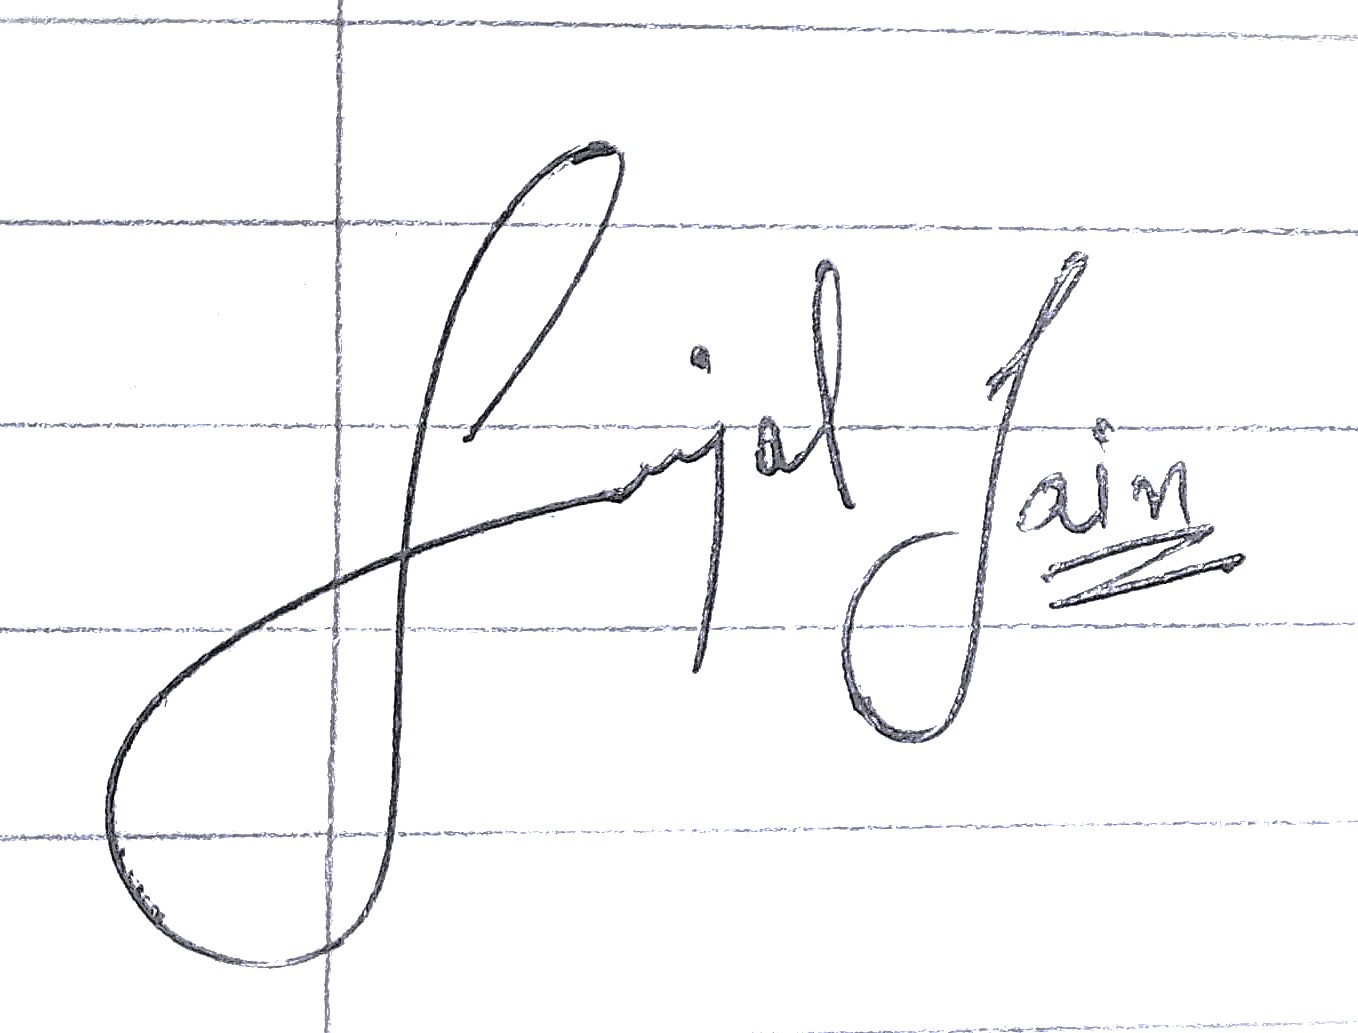 Sujal Jain